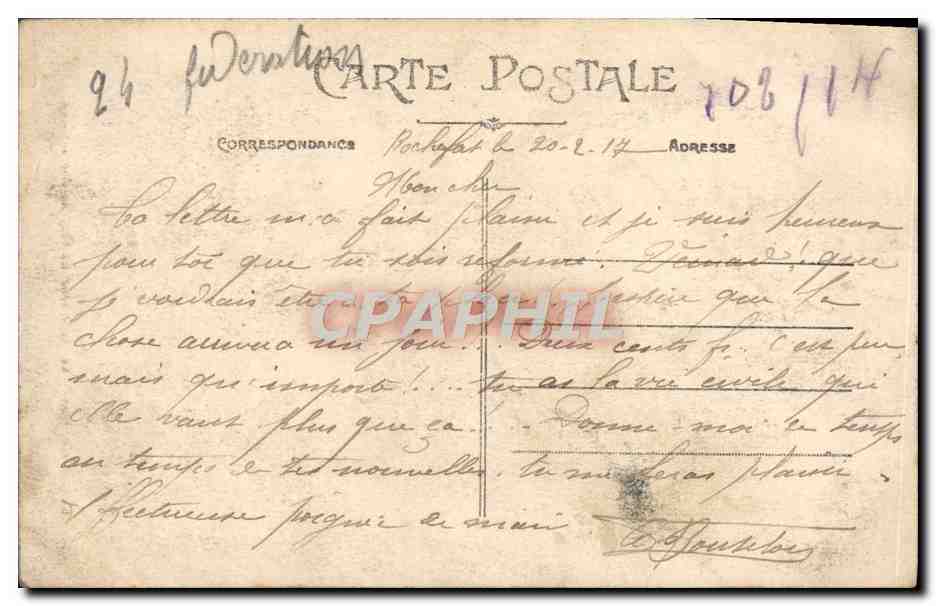 94 federation
CARTE POSTALE
108/14
CORRESPONDANCE Rochefort le 20-2-17 ADRESSE
Mon cher
Ta lettre m'a fait plaisir et je suis heureux
pour toi que tu sois reformé. que
je voudrais être à ta place! J'espère que la
chose arrivera un jour... Deux cents f. c'est peu
mais qu'importe!... tu as la vie civile qui
elle vaut plus que ça!... Donne-moi de temps
en temps de tes nouvelles. tu me feras plaisir.
Affectueuse poignée de main
CPAPHIL